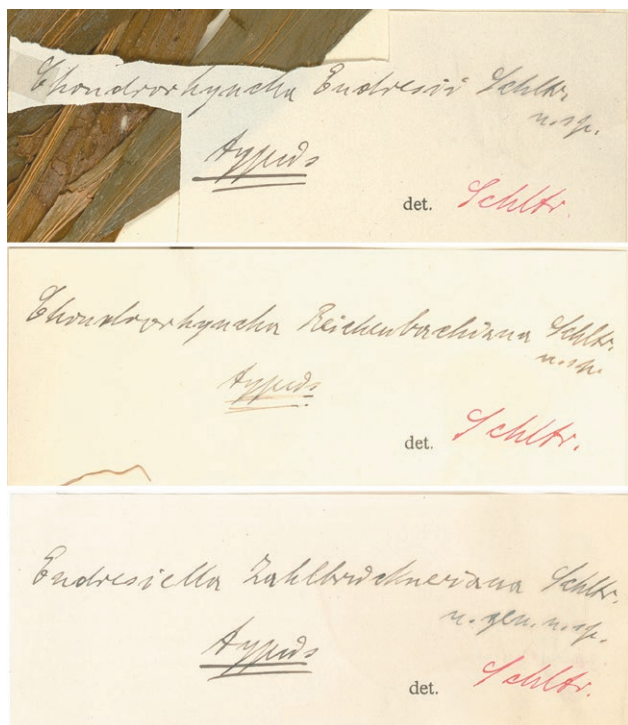 Chondrorhyncha Endresii Schltr.
n. sp.
typus
det. Schltr.
Chondrorhyncha Reichenbachiana Schltr.
n. sp.
typus
det. Schltr.
Endresiella Zahlbrückneriana Schltr.
n. gen. n. sp.
typus
det. Schltr.